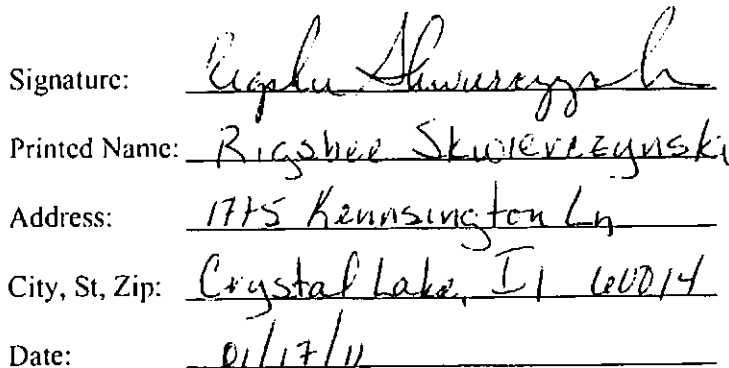 Signature:
Printed Name: Rigsbee Skwierczynski
Address: 1775 Kennsington Ln
City, St, Zip: Crystal Lake, Il 60014
Date: 01/17/11